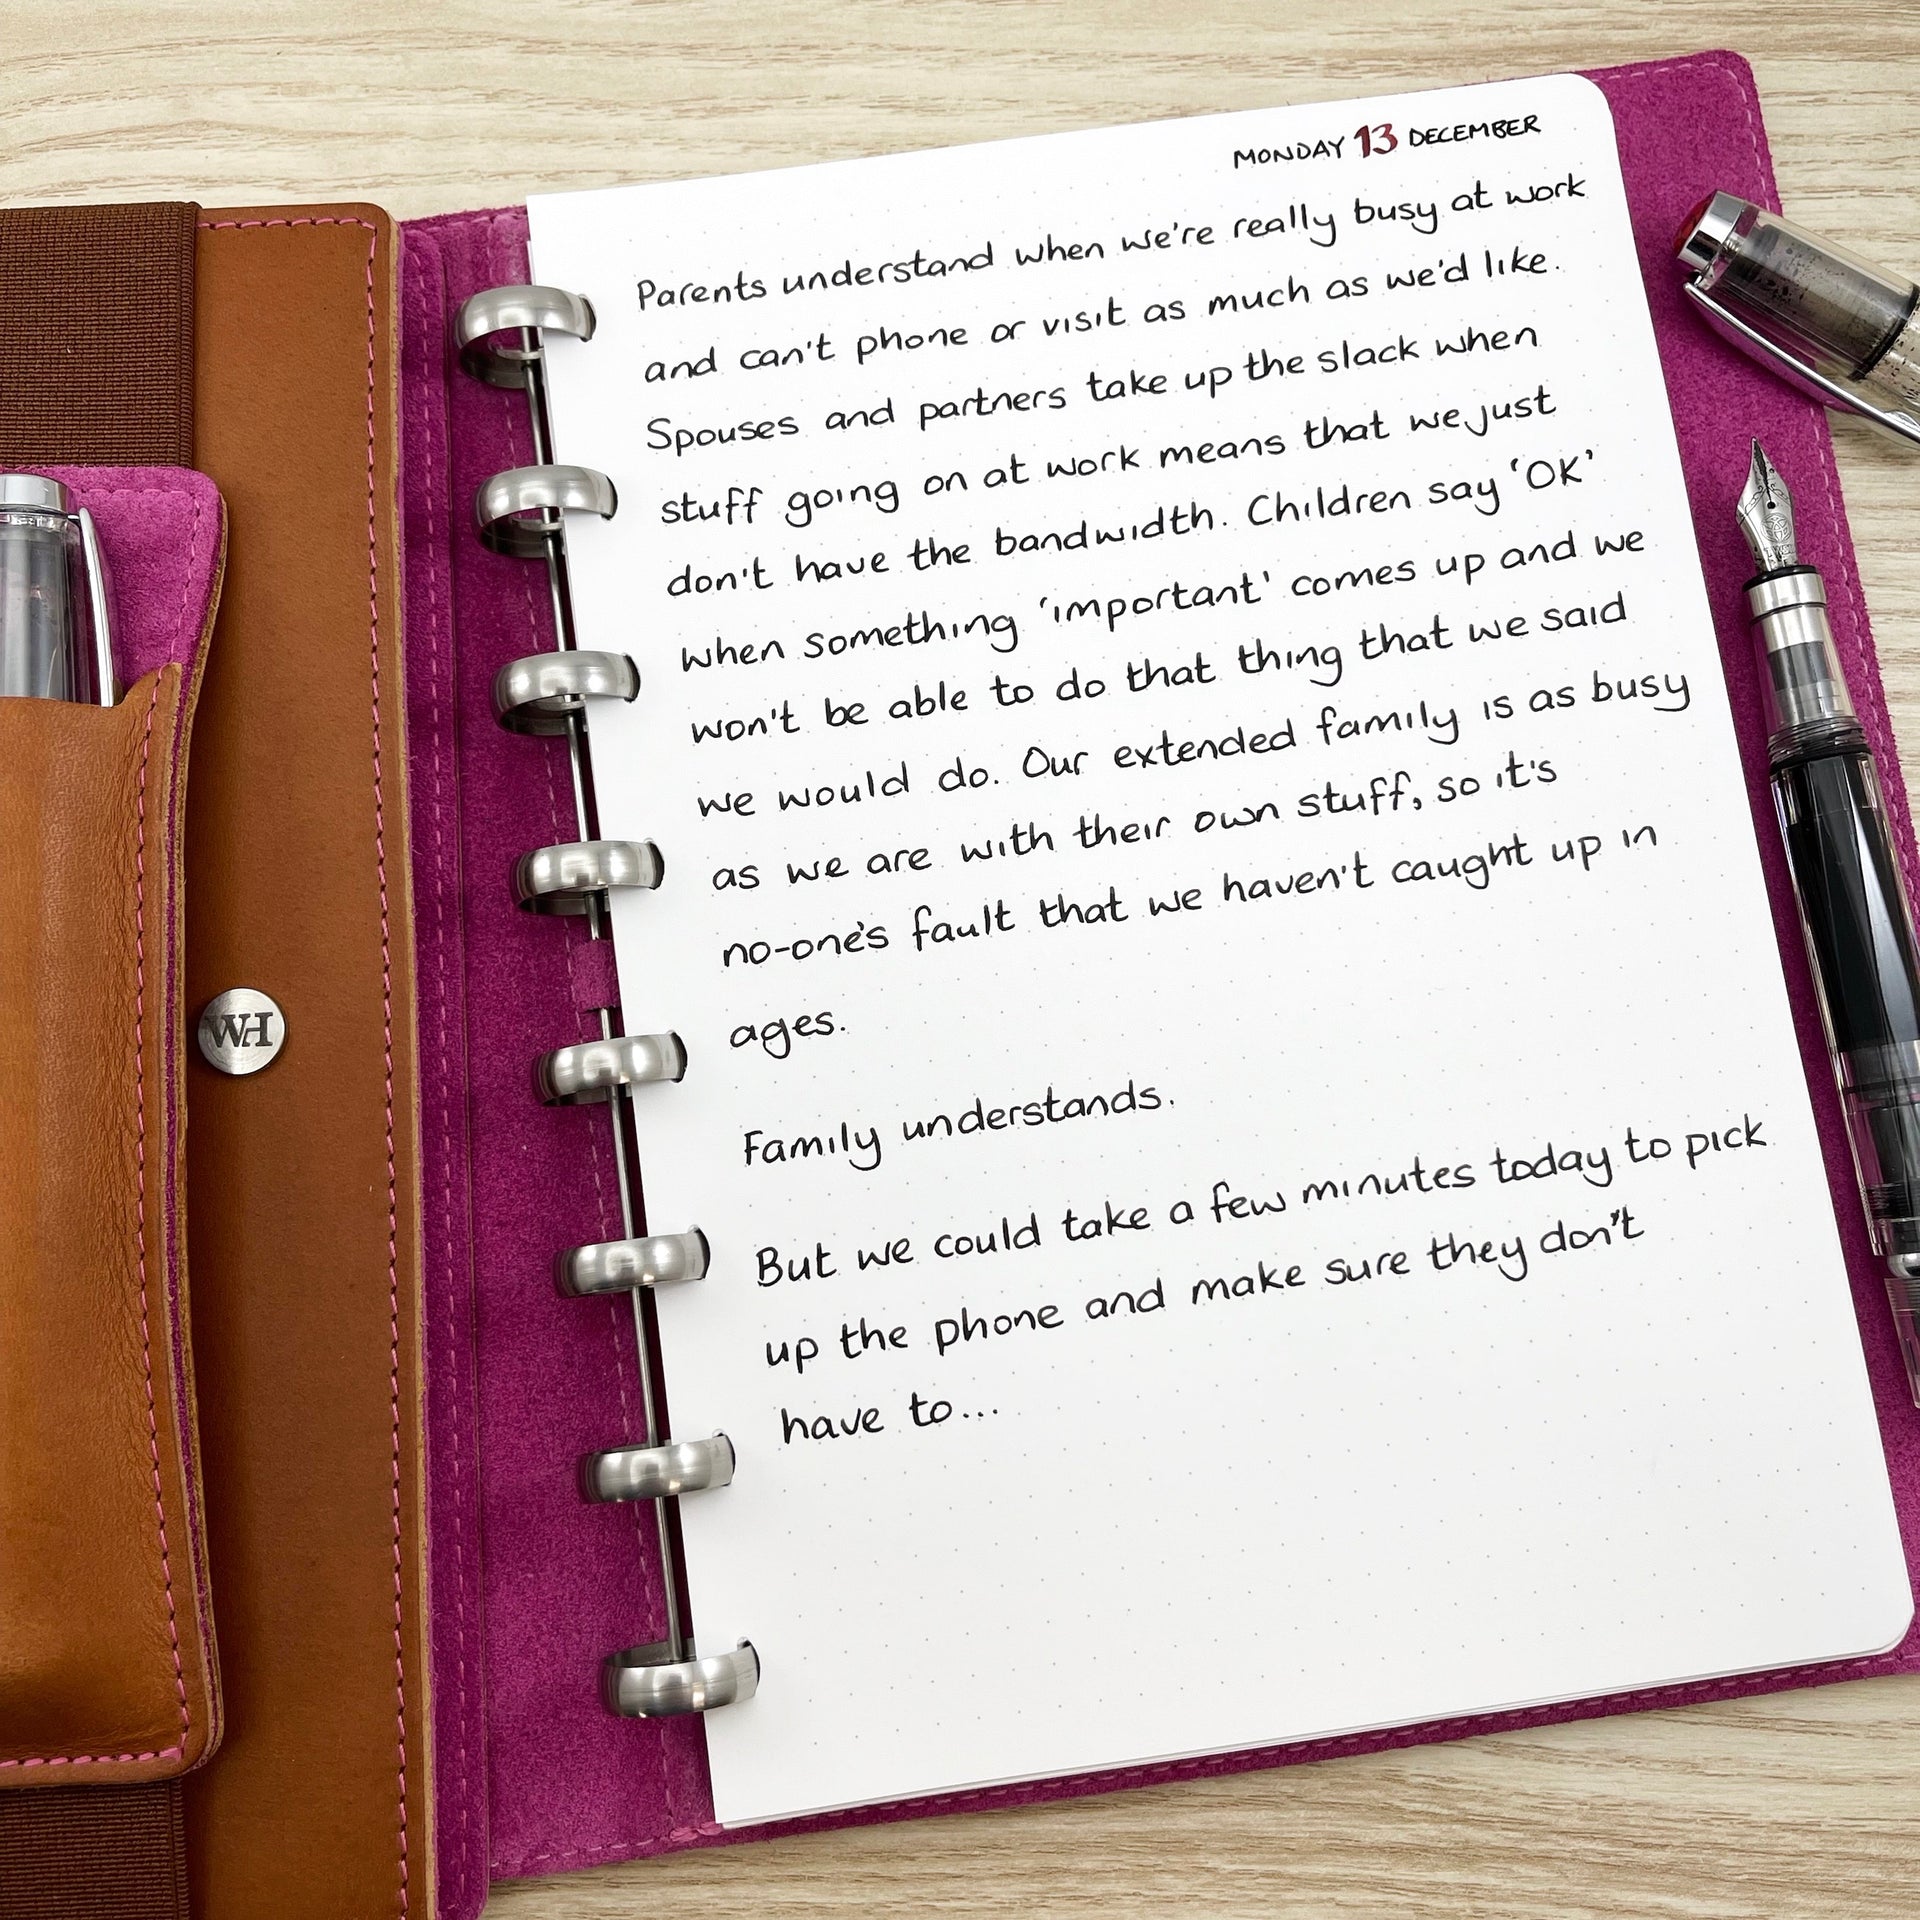 MONDAY 13 DECEMBER
Parents understand when we're really busy at work
and can't phone or visit as much as we'd like.
Spouses and partners take up the slack when
stuff going on at work means that we just
don't have the bandwidth. Children say 'OK'
when something 'important' comes up and we
won't be able to do that thing that we said
we would do. Our extended family is as busy
as we are with their own stuff, so it's
no-one's fault that we haven't caught up in
ages.
Family understands.
But we could take a few minutes today to pick
up the phone and make sure they don't
have to...
WH